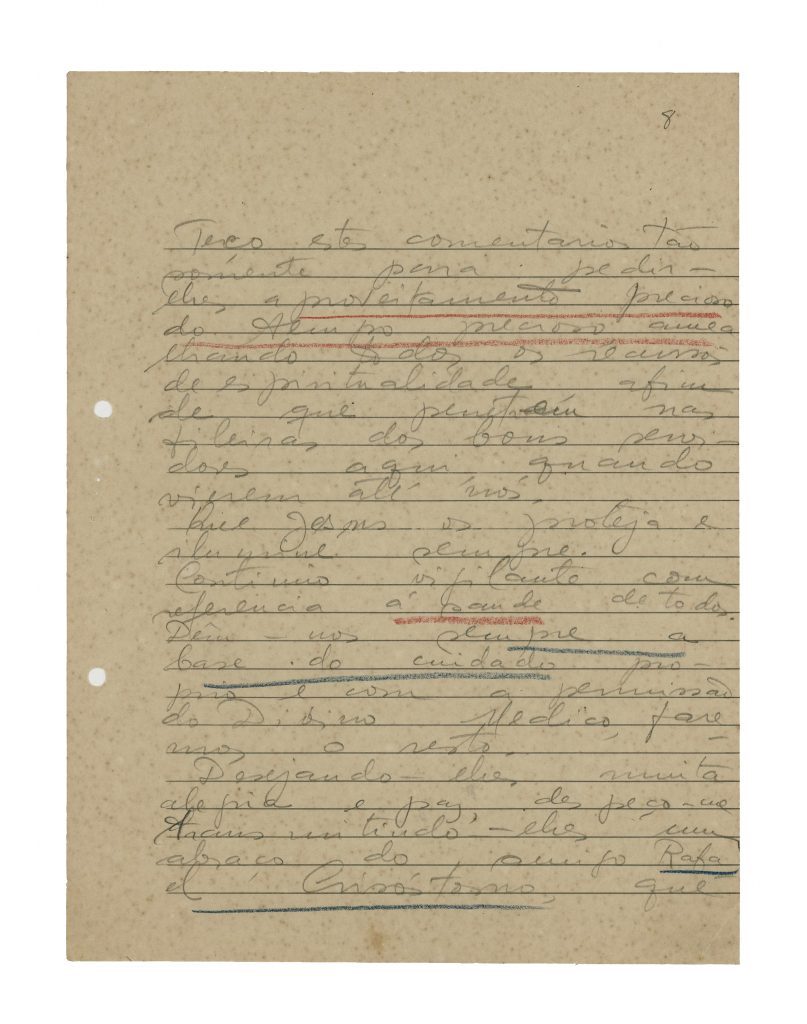 8
Teço estes comentarios tão
sómente para pedir-
lhes aproveitamento precioso
do tempo precioso amea
lhando todos os recursos
de espiritualidade afim
de que penetrem nas
fileiras dos bons servi-
dores aqui quando
vierem até nós.
Que Jesus os proteja e
ilumine sempre.
Continuo vigilante com
referencia á saude de todos.
Dêm-nos sempre a
base do cuidado pro-
prio e com a permissão
do Divino Medico, fare
mos o resto.
Desejando-lhes muita
alegria e paz, despeço-me
transmitindo-lhes um
abraço do amigo Rafa
el Crisóstomo, que